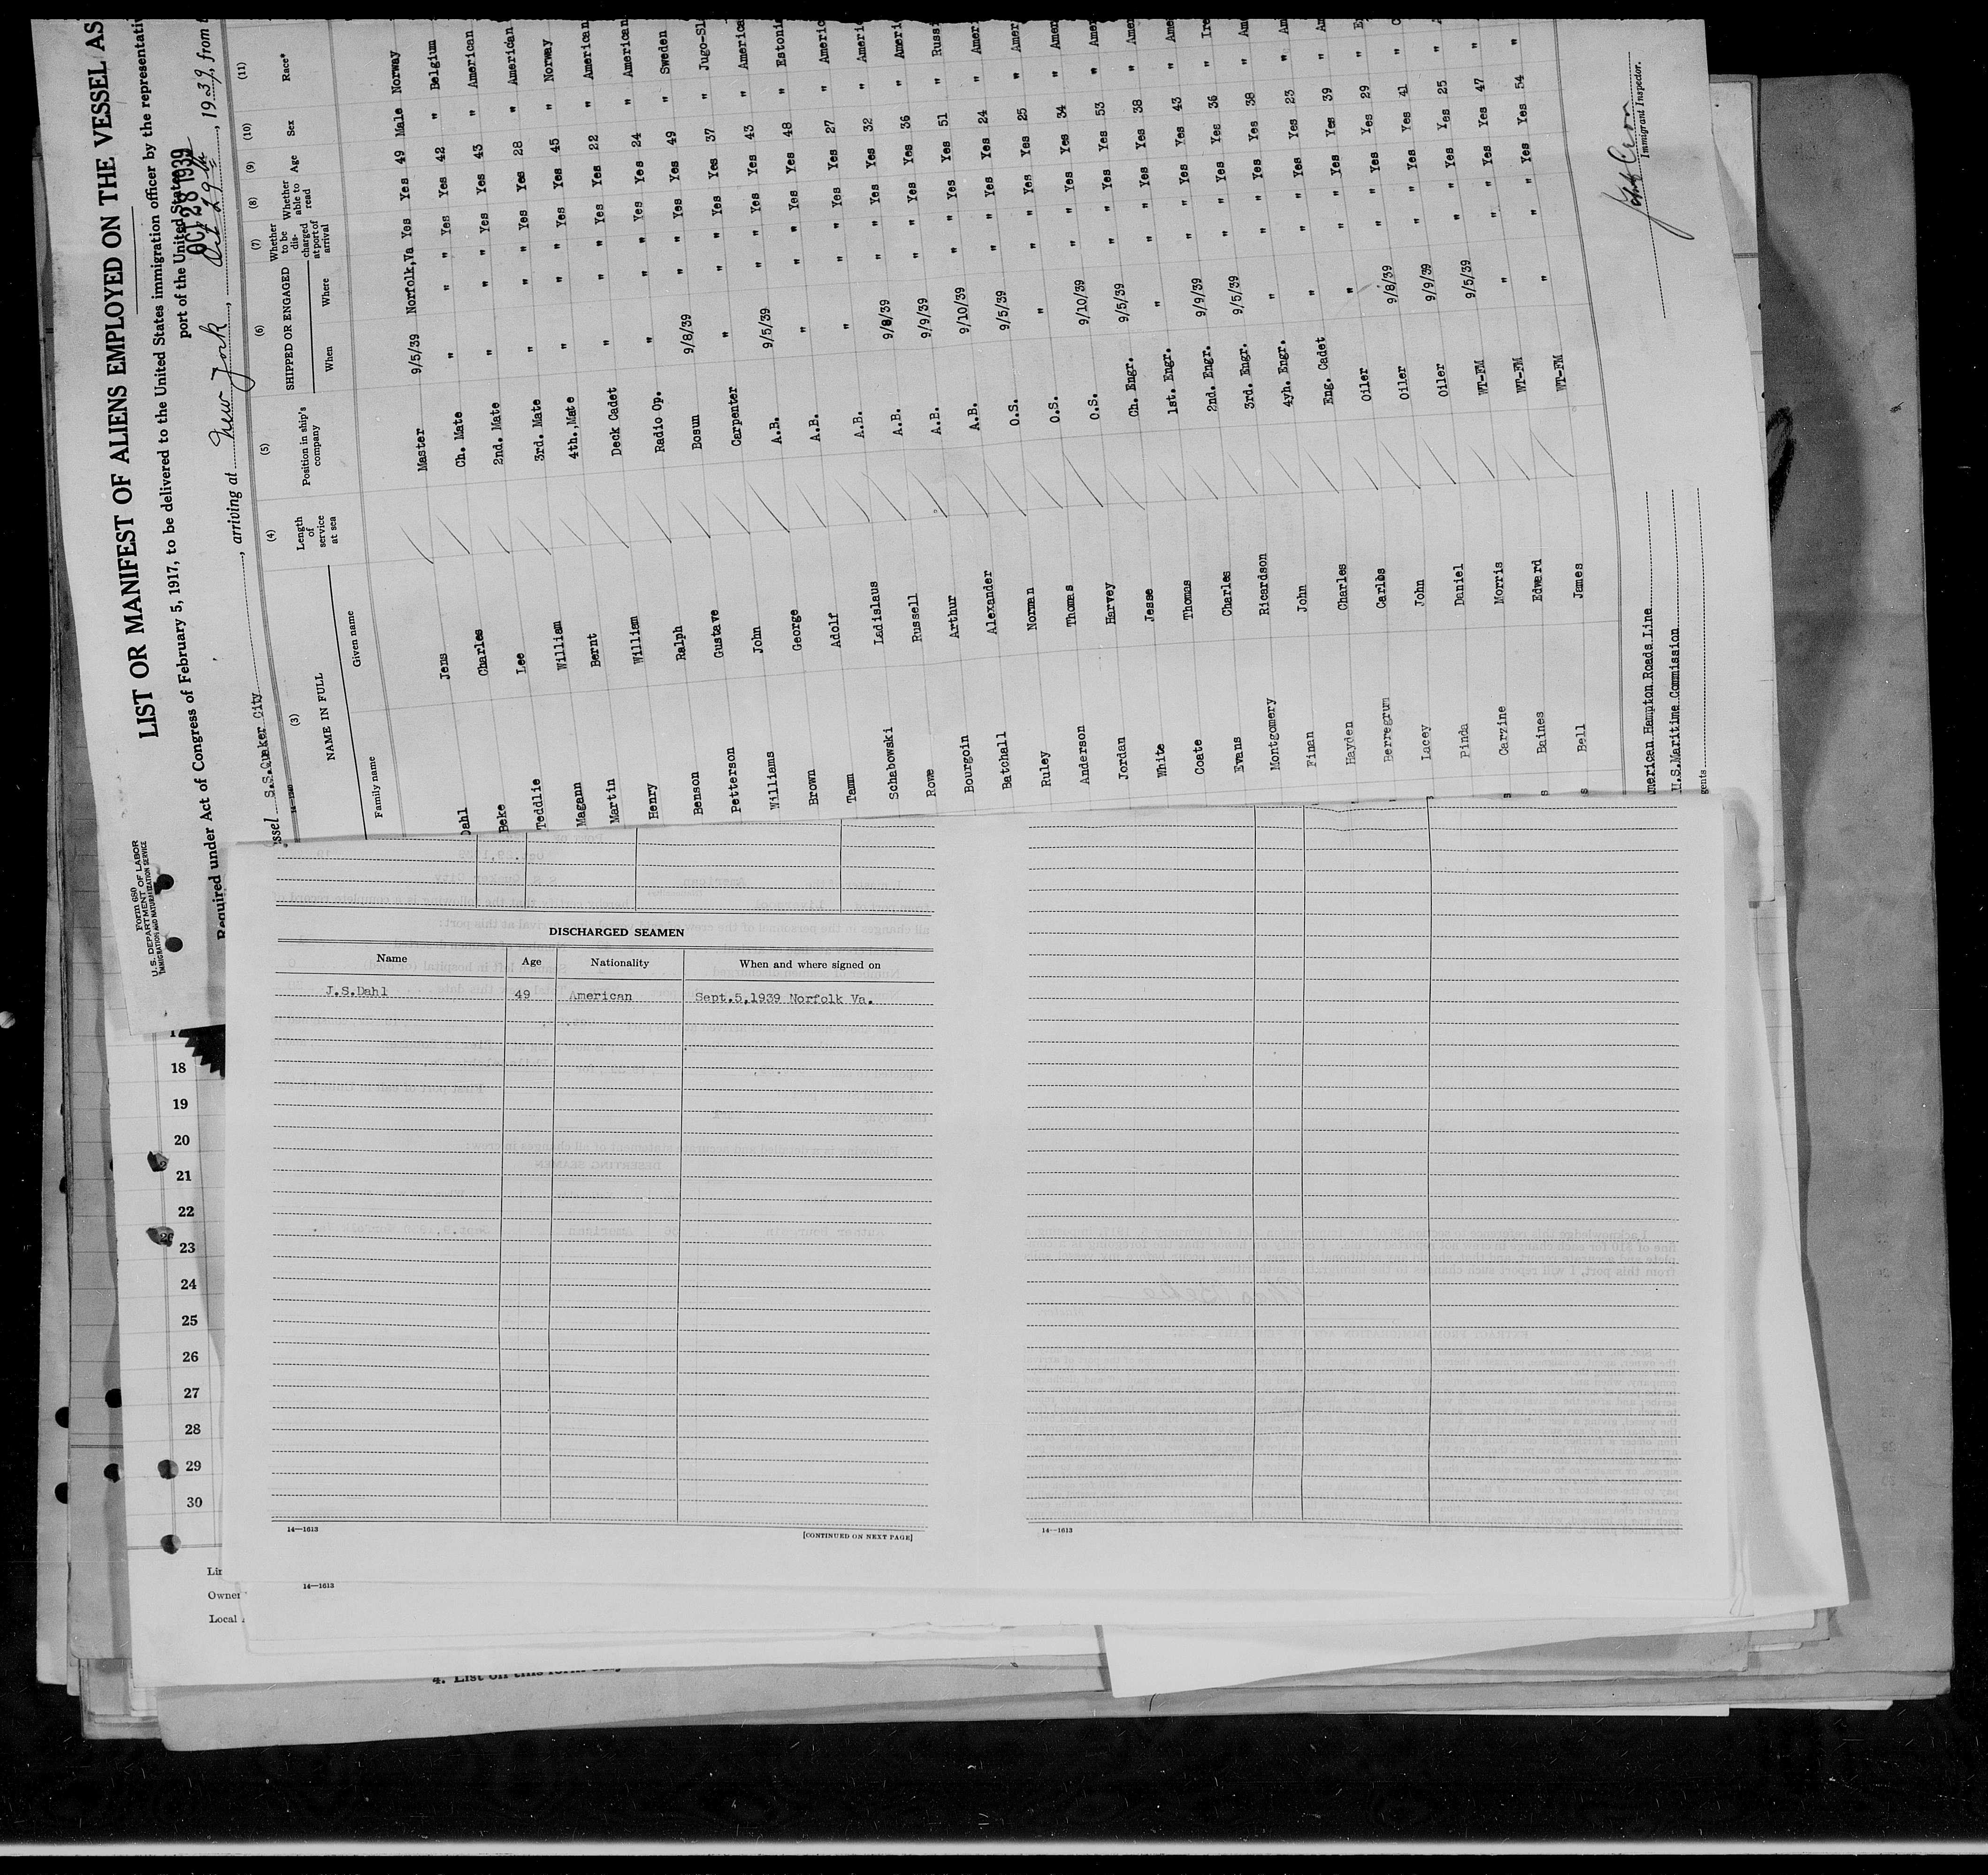 Form 680
U. S. DEPARTMENT OF LABOR
IMMIGRATION AND NATURALIZATION SERVICE
LIST OR MANIFEST OF ALIENS EMPLOYED ON THE VESSEL AS
Required under Act of Congress of February 5, 1917, to be delivered to the United States immigration officer by the representativ
port of the United States
OCT 28 1939
ssel S.S.Quaker City, arriving at New York, Oct 29th, 1939, from
14—1240
(3) (4) (5) (6) (7) (8) (9) (10) (11)
NAME IN FULL Length of service at sea Position in ship's company SHIPPED OR ENGAGED Whether to be discharged at port of arrival Whether able to read Age Sex Race*
Family name Given name When Where
Dahl Jens Master 9/5/39 Norfolk,Va Yes Yes 49 Male Norway
Beke Charles Ch. Mate " " Yes Yes 42 " Belgium
Teddlie Lee 2nd. Mate " " " Yes Yes 43 " American
Magann William 3rd. Mate " " " Yes Yes 28 " American
Martin Bernt 4th.,Mate " " " Yes Yes 45 " Norway
Henry William Deck Cadet " " " Yes Yes 22 " American
Benson Ralph Radio Op. " " " Yes Yes 24 " American
Petterson Gustave Bosun 9/8/39 " " Yes Yes 49 " Sweden
Williams John Carpenter " " " Yes Yes 37 " Jugo-Sl
Brown George A.B. 9/5/39 " " Yes Yes 43 " America
Tamm Adolf A.B. " " " Yes Yes 48 " Estoni
Schabowski Ladislaus A.B. " " " Yes Yes 27 " Americ
Rowe Russell A.B. 9/8/39 " " Yes Yes 32 " Ameri
Bourgoin Arthur A.B. 9/9/39 " " Yes Yes 36 " Ameri
Batchall Alexander A.B. 9/10/39 " " Yes Yes 51 " Russi
Ruley Norman O.S. 9/5/39 " " Yes Yes 24 " Amer
Anderson Thomas O.S. " " " Yes Yes 25 " Amer
Jordan Harvey O.S. 9/10/39 " " Yes Yes 34 " Amer
White Jesse Ch. Engr. 9/5/39 " " Yes Yes 53 " Amer
Coate Thomas 1st. Engr. " " " Yes Yes 38 " Amer
Evans Charles 2nd. Engr. 9/9/39 " " Yes Yes 43 " Ame
Montgomery Ricardson 3rd. Engr. 9/5/39 " " Yes Yes 36 " Ire
Finan John 4yh. Engr. " " " Yes Yes 38 " Am
Hayden Charles Eng. Cadet " " " Yes Yes 23 " Am
Berregrum Carlos Oiler " " " Yes Yes 39 " Am
Lacey John Oiler 9/8/39 " " Yes Yes 29 "
Pinda Daniel Oiler 9/9/39 " " Yes Yes 41 "
Carzine Morris WT-FM 9/5/39 " " Yes Yes 25 "
Baines Edward WT-FM " " " Yes Yes 47 "
Bell James WT-FM " " " Yes Yes 54 "
merican Hampton Roads Line
U.S.Maritime Commission
gents
Immigrant Inspector.
DISCHARGED SEAMEN
Name Age Nationality When and where signed on
J.S.Dahl 49 American Sept.5,1939 Norfolk Va.
14—1613 [CONTINUED ON NEXT PAGE] 14—1613
18
19
20
21
22
23
24
25
26
27
28
29
30
Lin
Owner
Local
14—1613
4. List on this form